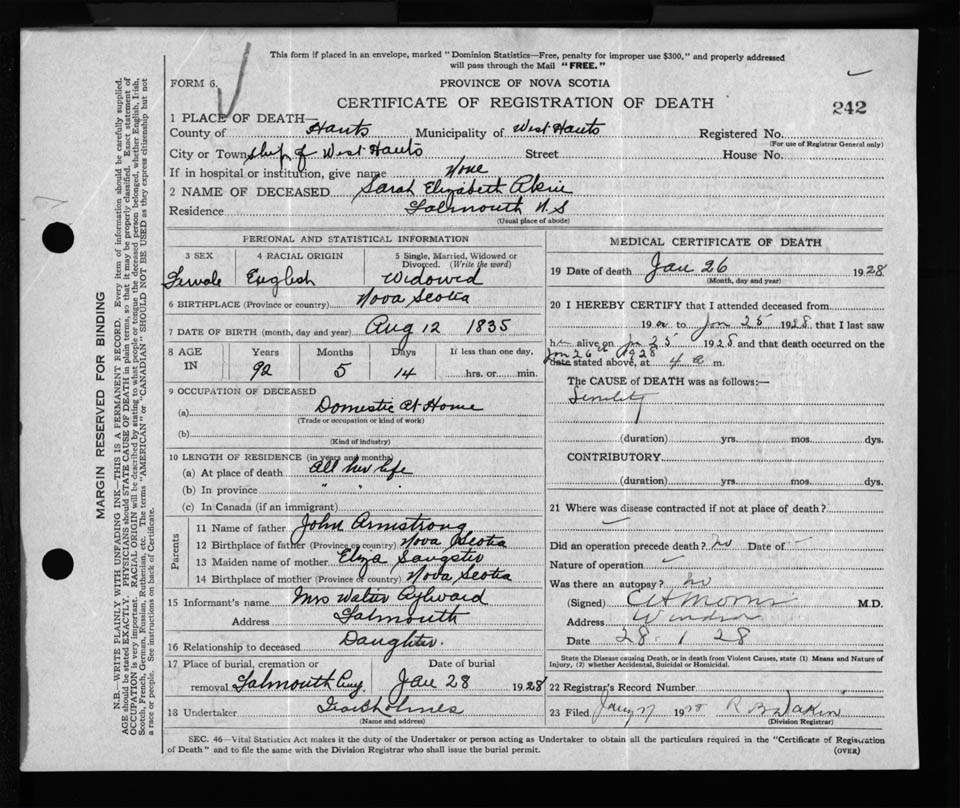 This form if placed in an envelope, marked "Dominion Statistics—Free, penalty for improper use $300," and properly addressed
will pass through the Mail "FREE."
FORM 6.
PROVINCE OF NOVA SCOTIA
CERTIFICATE OF REGISTRATION OF DEATH
242
1 PLACE OF DEATH—
County of Hants Municipality of West Hants Registered No.
(For use of Registrar General only)
City or Town of West Hants Street House No.
If in hospital or institution, give name None
2 NAME OF DECEASED Sarah Elizabeth Akin
Residence Falmouth N.S
(Usual place of abode)
PERSONAL AND STATISTICAL INFORMATION
3 SEX 4 RACIAL ORIGIN 5 Single, Married, Widowed or Divorced. (Write the word)
Female English Widowed
6 BIRTHPLACE (Province or country) Nova Scotia
7 DATE OF BIRTH (month, day and year) Aug 12 1835
8 AGE IN Years Months Days If less than one day,
92 5 14 hrs. or min.
9 OCCUPATION OF DECEASED
(a) Domestic at Home
(Trade or occupation or kind of work)
(b)
(Kind of industry)
10 LENGTH OF RESIDENCE (in years and months)
(a) At place of death all her life
(b) In province " " "
(c) In Canada (if an immigrant)
Parents
11 Name of father John Armstrong
12 Birthplace of father (Province or country) Nova Scotia
13 Maiden name of mother Eliza Sangster
14 Birthplace of mother (Province or country) Nova Scotia
15 Informant's name Mrs Walter Aylward
Address Falmouth
16 Relationship to deceased Daughter
17 Place of burial, cremation or Date of burial
removal Falmouth Jan 28 1928
18 Undertaker Holmes
(Name and address)
MEDICAL CERTIFICATE OF DEATH
19 Date of death Jan 26 1928
(Month, day and year)
20 I HEREBY CERTIFY that I attended deceased from
19 to Jan 25 1928 that I last saw
h alive on Jan 25 1928 and that death occurred on the
Jan 26th 1928
date stated above, at 4 a m.
The CAUSE of DEATH was as follows:—
Senility
(duration) yrs. mos. dys.
CONTRIBUTORY
(duration) yrs. mos. dys.
21 Where was disease contracted if not at place of death?
Did an operation precede death? no Date of
Nature of operation
Was there an autopsy? no
(Signed) Morris M.D.
Address Windsor
Date 28 1 28
State the Disease causing Death, or in death from Violent Causes, state (1) Means and Nature of
Injury, (2) whether Accidental, Suicidal or Homicidal.
22 Registrar's Record Number
23 Filed Jany 27 1928 R B Dakin
(Division Registrar)
SEC. 46—Vital Statistics Act makes it the duty of the Undertaker or person acting as Undertaker to obtain all the particulars required in the "Certificate of Registration
of Death" and to file the same with the Division Registrar who shall issue the burial permit.
(OVER)
MARGIN RESERVED FOR BINDING
N.B.—WRITE PLAINLY WITH UNFADING INK—THIS IS A PERMANENT RECORD. Every item of information should be carefully supplied.
AGE should be stated EXACTLY. PHYSICIANS should STATE CAUSE OF DEATH in plain terms, so that it may be properly classified. Exact statement of
OCCUPATION is very important. RACIAL ORIGIN will be described by stating to what people or tongue the deceased person belonged, whether English, Irish,
Scotch, French, German, Russian, Ruthenian, etc. The terms "AMERICAN" or "CANADIAN" SHOULD NOT BE USED as they express citizenship but not
a race or people. See instructions on back of Certificate.